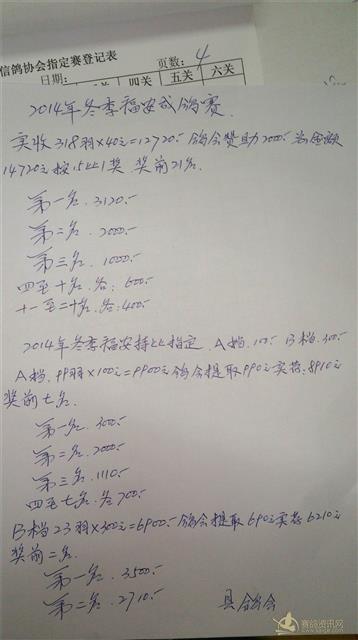 信鸽协会指定赛登记表
日期: 页数: 4
四关 五关 六关
2014年冬季福安成鸽赛.
实收318羽×40元=12720.- 鸽会赞助2000.-
14720元按15比1奖 奖前21名.
第一名. 3120.-
第二名. 2000.-
第三名. 1000.-
四至十名. 各: 600.-
十一至二十名. 各: 400.-
2014年冬季福安特比指定 A档. 100.- B档. 300.-
A档. 99羽×100元=9900元 鸽会提取990元实落: 8910元
奖前七名.
第一名. 300.-
第二名. 2000.-
第三名. 1110.-
四至七名. 各700.-
B档23羽×300元=6900.- 鸽会提取690元实落6210元
奖前二名.
第一名. 3500.-
第二名. 2710.-
县鸽会
赛鸽资讯网